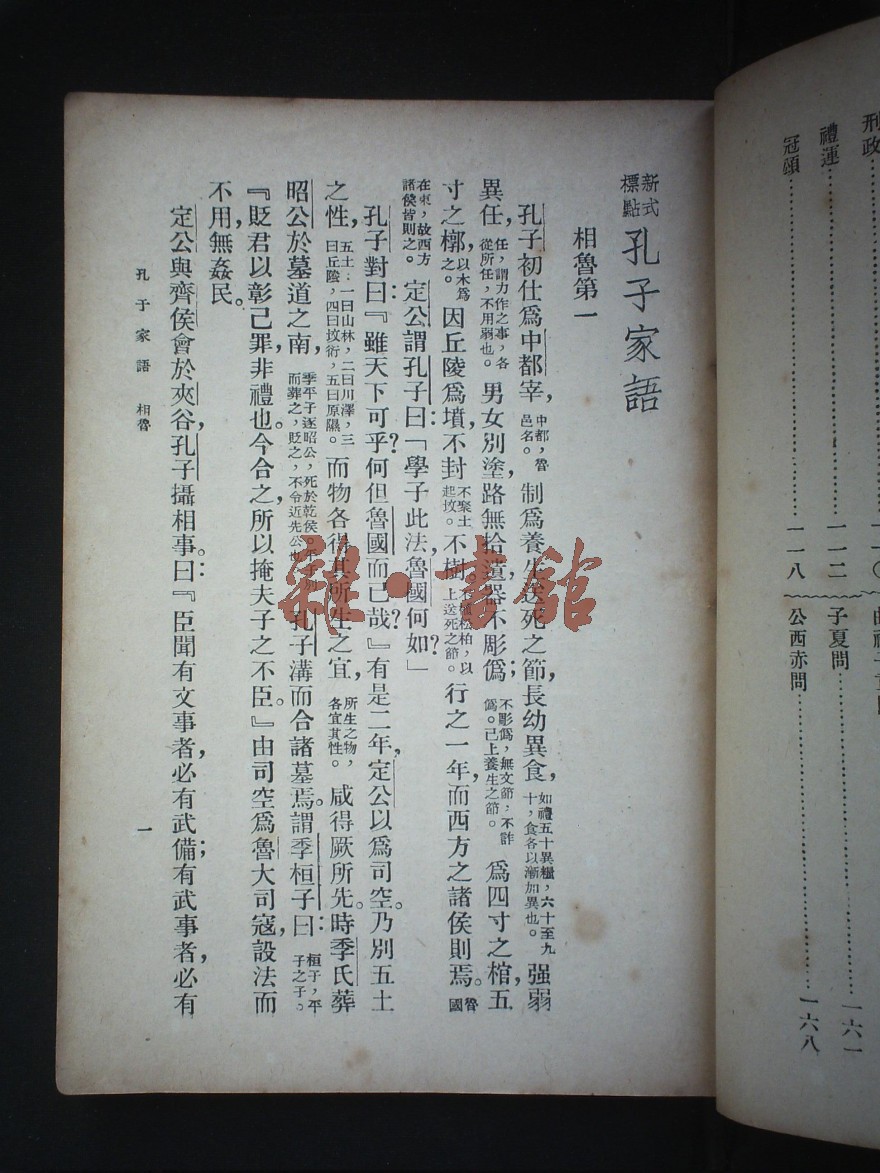 刑政
禮運……一一二
冠頌……一一八
子夏問……一六一
公西赤問……一六八
新式標點 孔子家語
相魯第一
孔子初仕爲中都宰，中都，魯邑名。制爲養生送死之節，長幼異食，如禮五十異糧，六十至九十，食各以漸加異也。强弱
異任，任，謂力作之事，各從所任，不用弱也。男女別塗，路無拾遺，器不彫僞；不彫僞，無文飾，不詐僞。已上養生之節。爲四寸之棺，五
寸之槨。以木爲之。因丘陵爲墳，不封不聚土起墳。不樹松柏，以上送死之節。行之一年，而西方之諸侯則焉。魯國
在東，故西方諸侯皆則之。定公謂孔子曰：「學子此法，魯國何如？」
孔子對曰：『雖天下可乎？何但魯國而已哉？』有是二年，定公以爲司空。乃別五土
之性，五土：一曰山林，二曰川澤，三曰丘陵，四曰墳衍，五曰原隰。而物各得其所生之宜，所生之物，各宜其性。咸得厥所。先時季氏葬
昭公於墓道之南，季平子逐昭公，死於乾侯。平子別而葬之，貶之，不令近先公也。孔子溝而合諸墓焉。謂季桓子曰：桓子，平子之子。
『貶君以彰己罪，非禮也。今合之，所以掩夫子之不臣。』由司空爲魯大司寇，設法而
不用，無姦民。
定公與齊侯會於夾谷，孔子攝相事。曰：『臣聞有文事者，必有武備；有武事者，必有
孔子家語 相魯
一
雜·書館